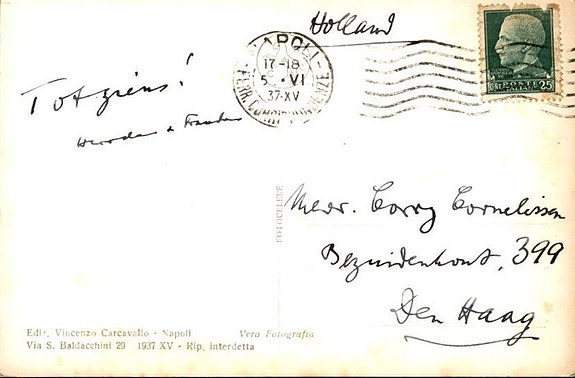 Holland
NAPOLI
17-18
5 VI
37-XV
FERR. CORRISPONDENZE
POSTE ITALIANE
CENT. 25
Tot ziens!
FOTOCELERE
Mevr. Corry Cornelissen
Bezuidenhout, 399
Den Haag
Ediz. Vincenzo Carcavallo - Napoli
Vera Fotografia
Via S. Baldacchini 29 1937 XV - Rip. interdetta